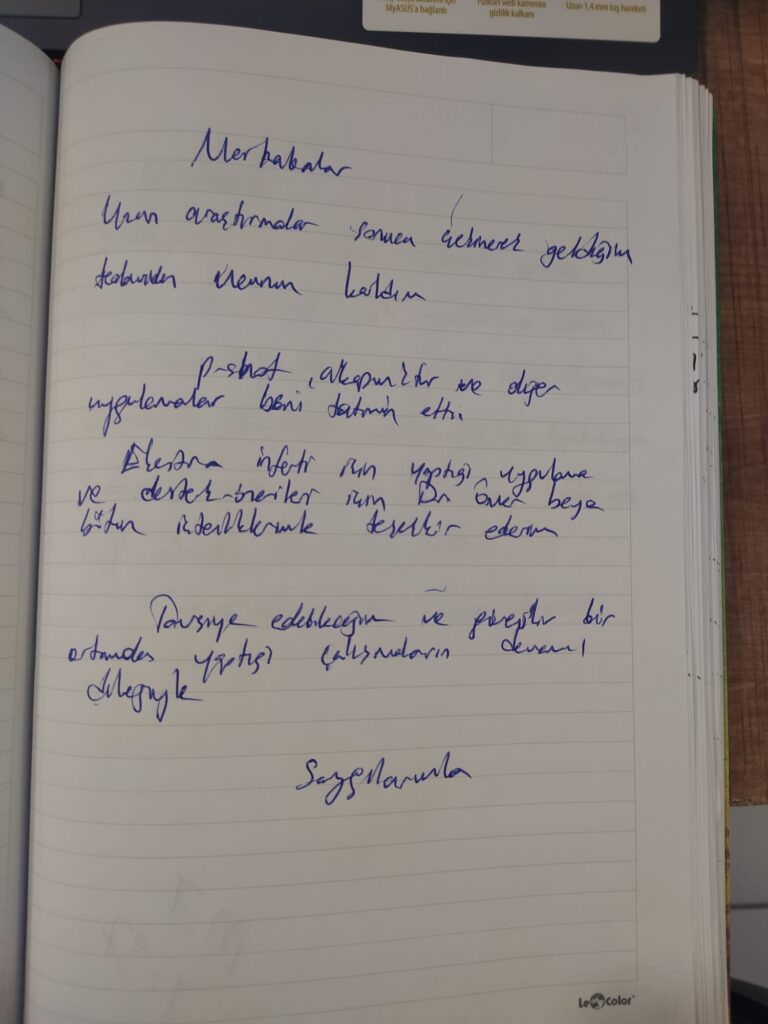 MyASUS'a bağlantı
Fiziksel web kamerası
gizlilik kalkanı
Uzun 1,4 mm tuş hareketi
Merhabalar
Uzun araştırmalar sonucu çekinerek geldiğim
tedaviden memnun kaldım
p-shot, akupunktur ve diğer
uygulamalar beni tatmin etti.
için yaptığı uygulama
ve destek-öneriler için Dr Ömer beye
bütün içtenliklerimle teşekkür ederim
Tavsiye edebileceğim ve güvenilir bir
ortamda yaptığı çalışmaların devamı
dileğiyle
Saygılarımla
Le Color